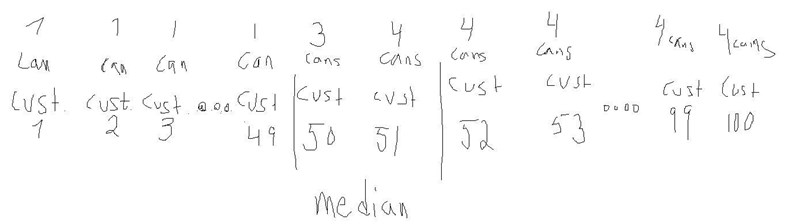 1 1 1 1 3 4 4 4 4 cans 4 cans
Can Can Can Can Cans Cans Cans Cans
Cust. Cust. Cust. .... Cust Cust Cust Cust Cust .... Cust Cust
1 2 3 49 50 51 52 53 99 100
median